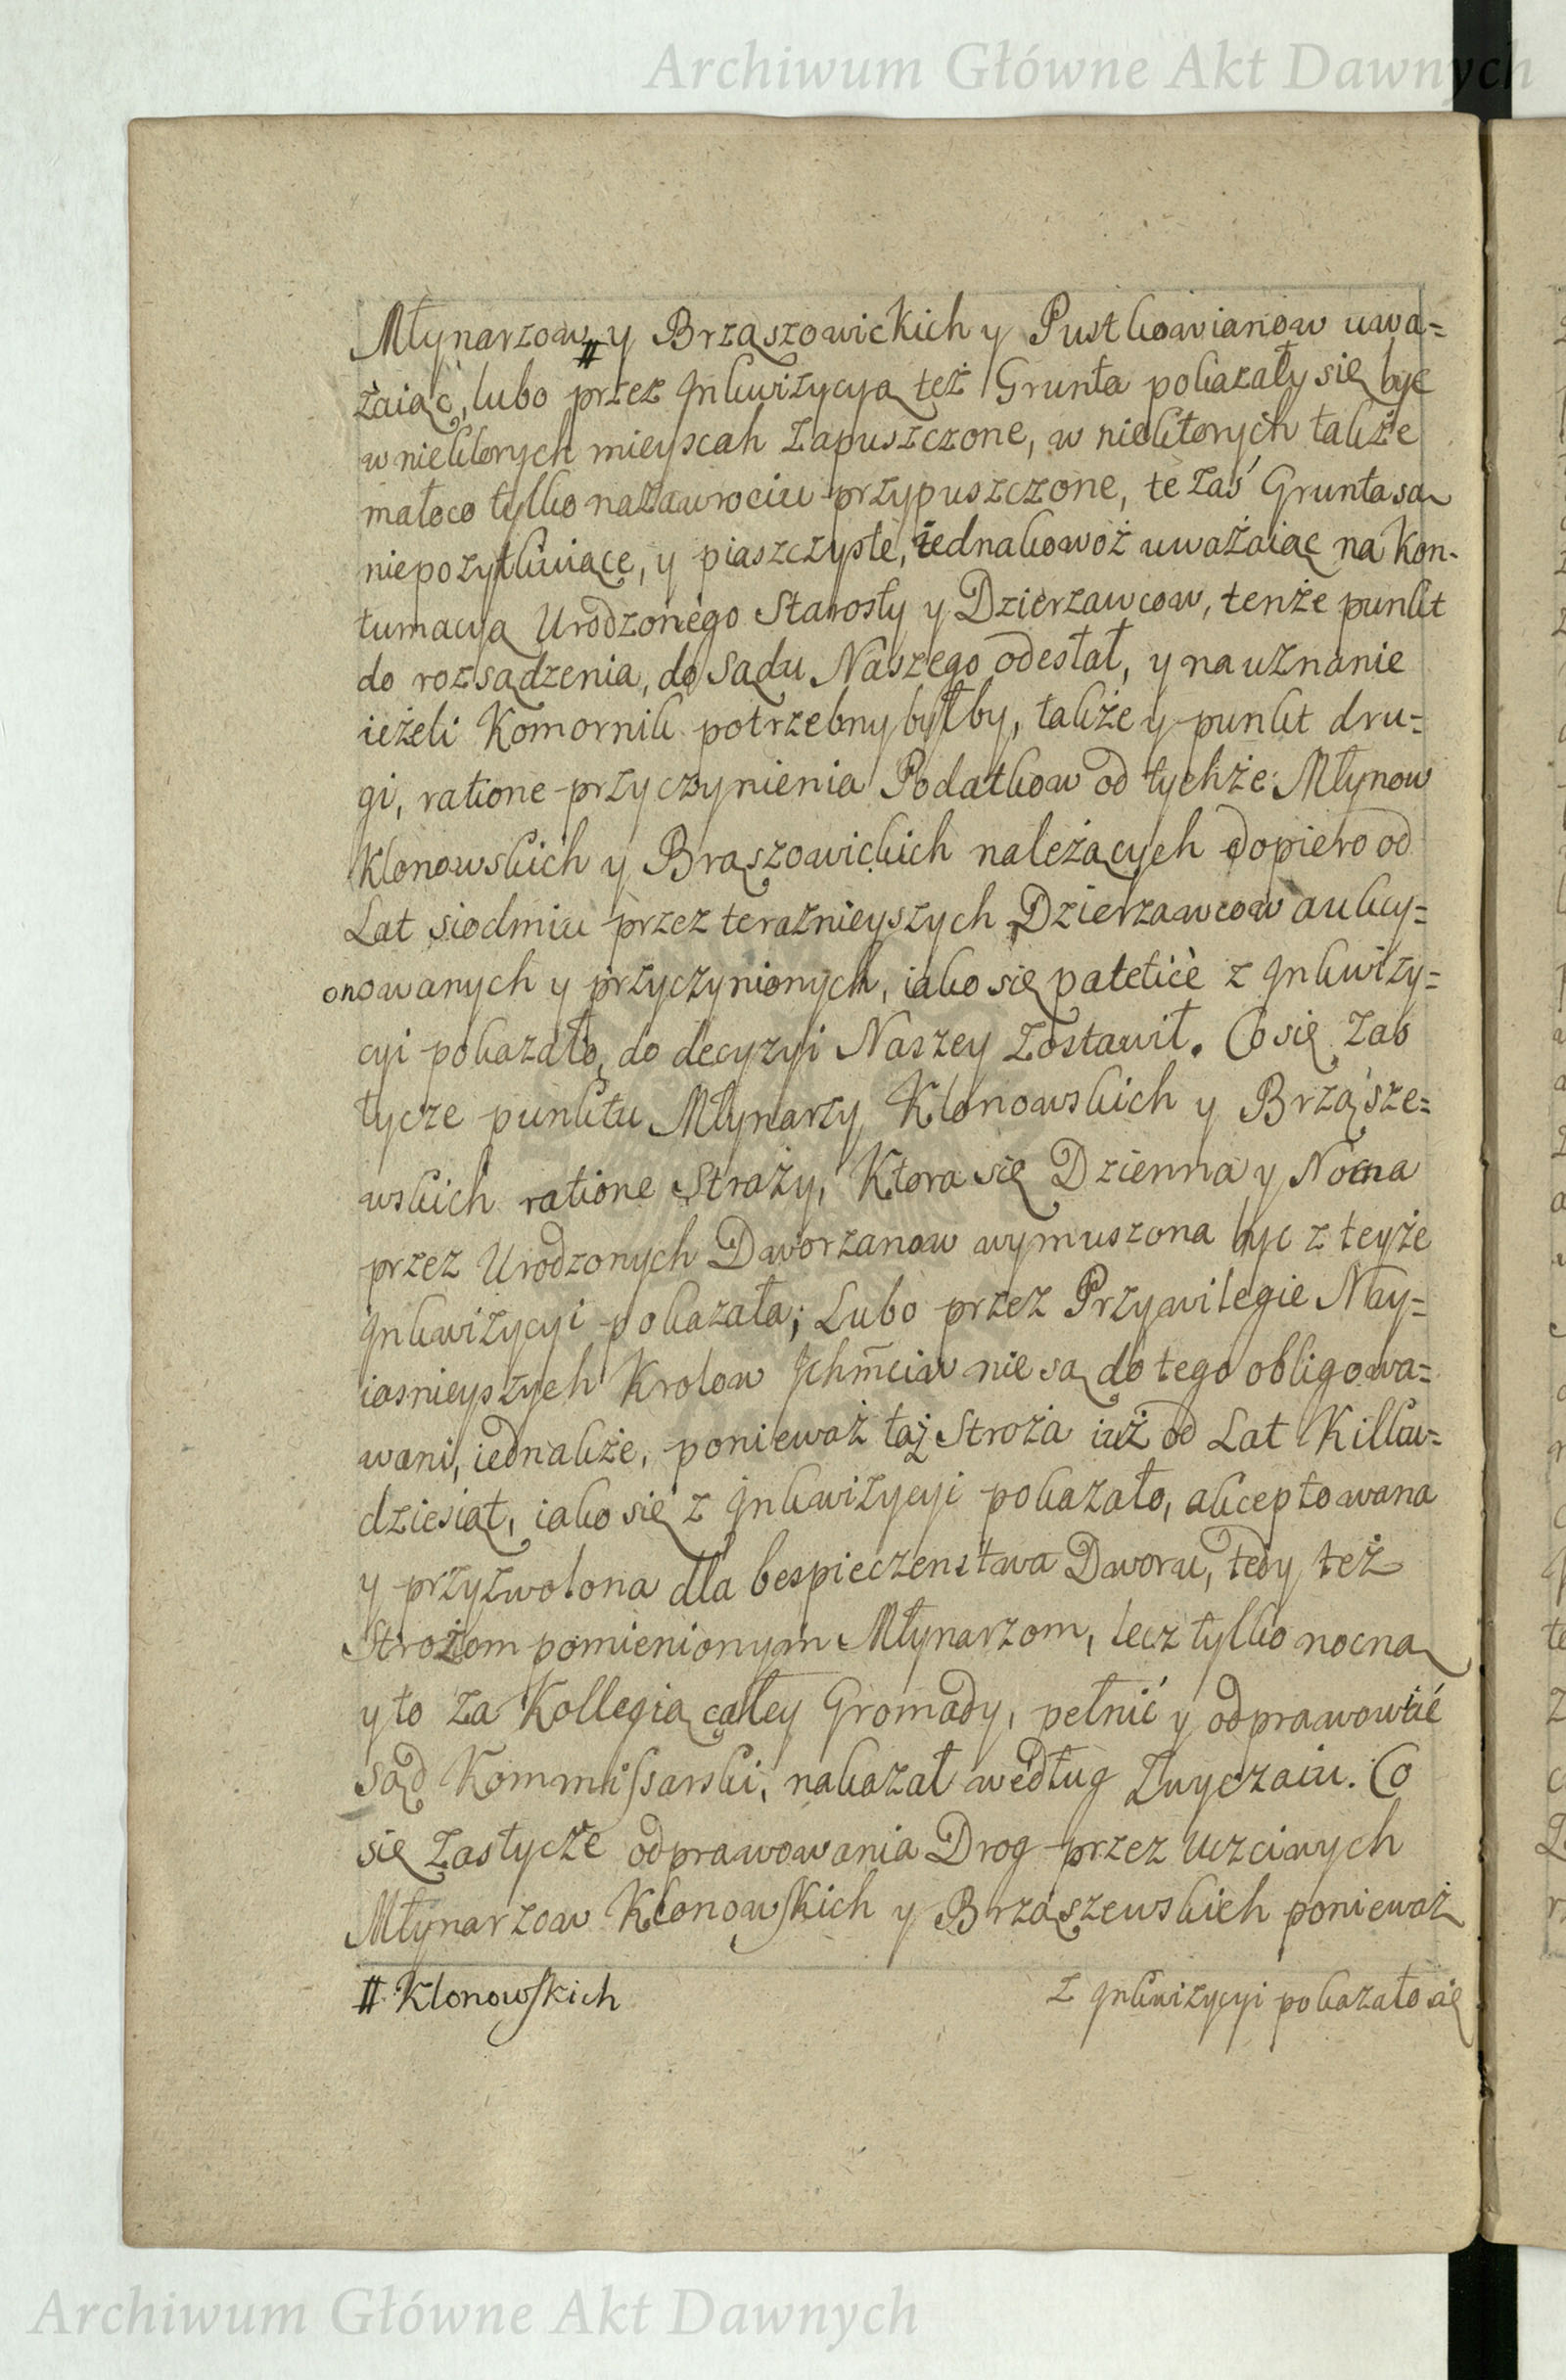 Archiwum Główne Akt Dawnych
Młynarzow # y Brząszowickich y Pustkowianow uwa=
żaiąc, lubo przez Jnkwizycyą też Grunta pokazały się być
w niektorych mieyscah zapuszczone, w niektorych także
małoco tylko nazawrociu przypuszczone, te zaś Grunta są
niepożytkuiące, y piaszczyste, iednakowoż uważaiąc na Kon-
tumacyą Urodzonego Starosty y Dzierżawcow, tenże punkt
do rozsądzenia, do Sądu Naszego odesłał, y na uznanie
ieżeli Komornik potrzebny byłby, także y punkt dru=
gi, ratione przyczynienia Podatkow od tychże Młynow
Klonowskich y Brąszowickich należących dopiero od
Lat siodmiu przez teraznieyszych Dzierzawcow aukcy=
onowanych y przyczynionych, iako się patetice z Jnkwizy=
cyi pokazało, do decyzyi Naszey zostawił. Co się zas
tycze punktu Młynarzy Klonowskich y Brząsze=
wskich ratione Straży, Ktora się Dzienna y Nocna
przez Urodzonych Dworzanow wymuszona byc z teyże
Jnkwizycyi pokazała; Lubo przez Przywilegie Nay=
iasnieyszych Krolow Jchmciow nie są do tego obligowa=
wani, iednakże, ponieważ taż Stroża iuż od Lat Kilku=
dziesiąt, iako się z Jnkwizycyi pokazało, akceptowana
y przyzwolona dla bespieczenstwa Dworu, tedy też
Strożom pomienionym Młynarzom, lecz tylko nocną
y to za Kollegią całey Gromady, pełnić y odprawować
Sąd Kommissarski, nakazał według Zwyczaiu. Co
się zastycze odprawowania Drog przez Uczciwych
Młynarzow Klonowskich y Brząszewskich ponieważ
# Klonowskich
z Jnkwizycyi pokazało się
Archiwum Główne Akt Dawnych